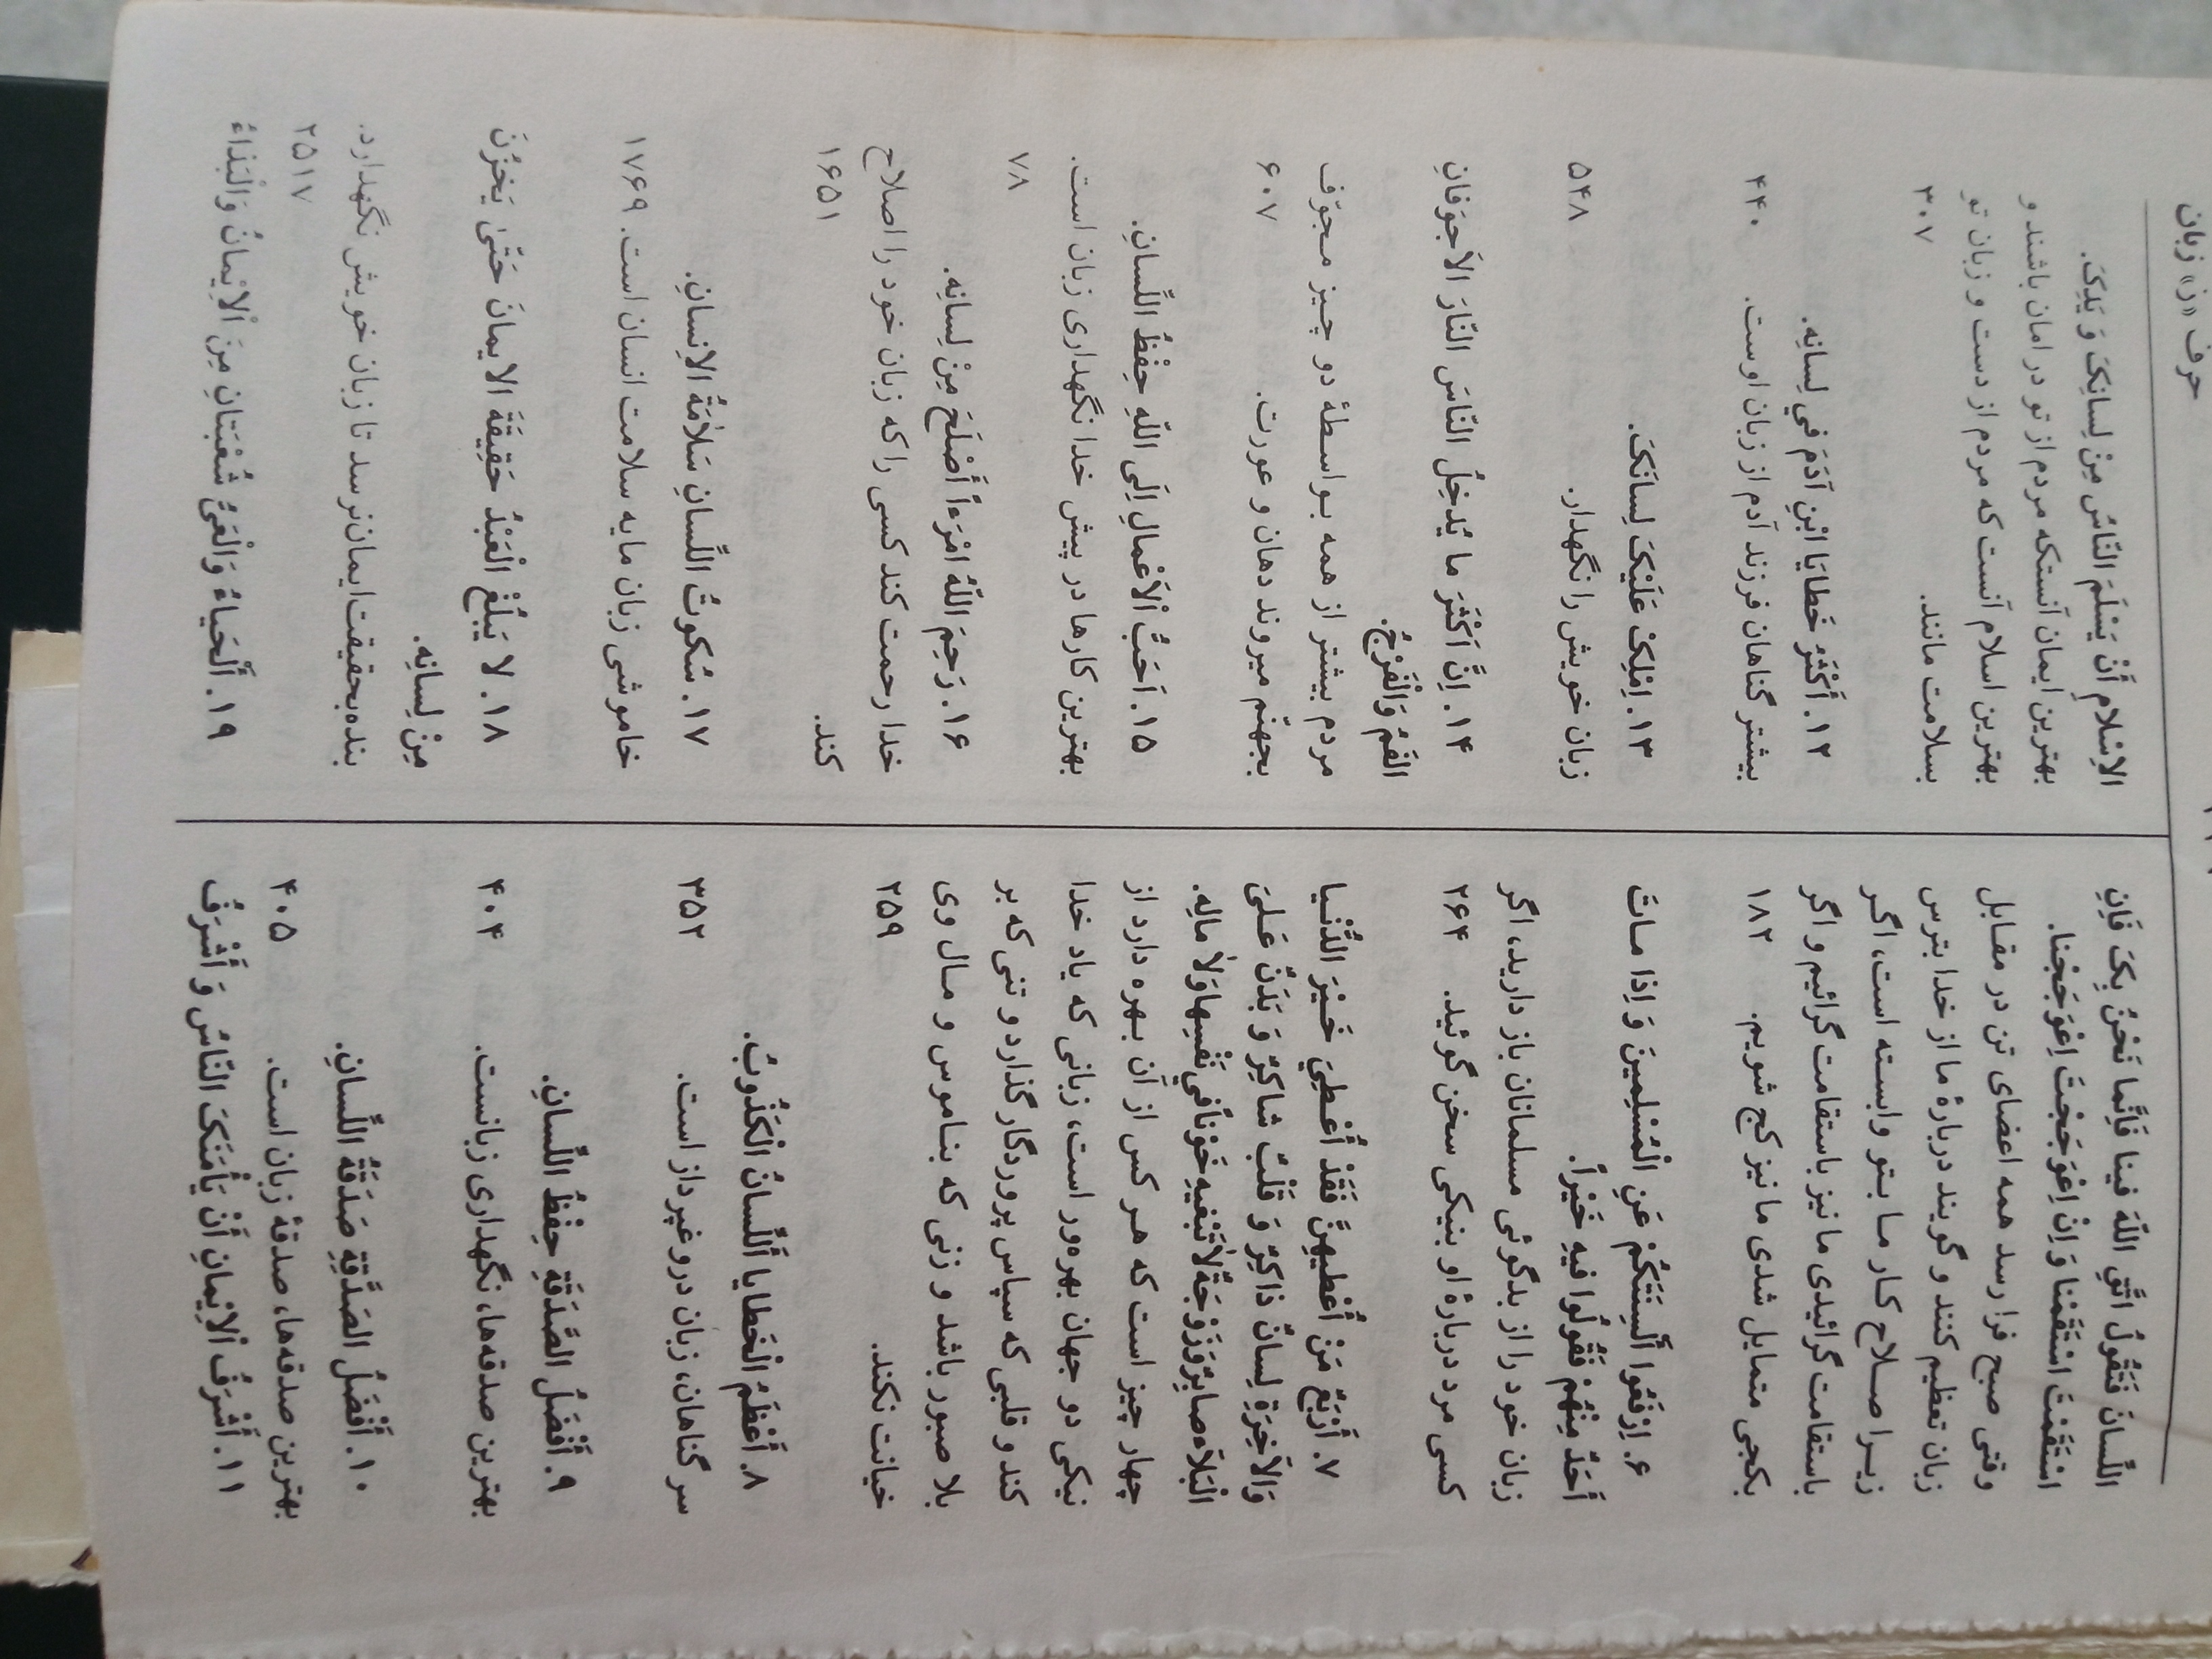 حرف «ز» زبان
اللِّسانَ فَتَقُولُ اتَّقِ اللّهَ فينا فَاِنَّما نَحْنُ بِکَ فَاِنِ
اسْتَقَمْتَ اسْتَقَمْنا وَ اِنْ اِعْوَجَجْتَ اِعْوَجَجْنا.
وقتی صبح فرا رسد همه اعضای تن در مقابل
زبان تعظیم کنند و گویند دربارهٔ ما از خدا بترس
زیـرا صـلاح کـار مـا بـتو وابسته است، اگـر
باستقامت گرائیدی ما نیز باستقامت گرائیم و اگر
بکجی متمایل شدی ما نیز کج شویم. ۱۸۲
۶. اِرْفَعُوا أَلْسِنَتَکُمْ عَنِ الْمُسْلِمینَ وَ اِذا مـاتَ
أَحَدٌ مِنْهُمْ فَقُولُوا فیهِ خَیْراً.
زبان خود را از بدگوئی مسلمانان باز دارید، اگر
کسی مرد دربارهٔ او بنیکی سخن گوئید. ۲۶۴
۷. أَرْبَعٌ مَنْ أُعْطِیهِنَّ فَقَدْ أُعْـطِیَ خَـیْرَ الدُّنْـیا
وَالآخِرَةِ لِسانٌ ذاکِرٌ وَ قَلْبٌ شاکِرٌ وَ بَدَنٌ عَـلیَ
الْبَلآءِ صابِرٌ وَ زَوْجَةٌ لاٰتَبْغیهِ خَوْناً فیٖ نَفْسِها وَلاٰ مالِهِ.
چهار چیز است که هـر کس از آن بـهره دارد از
نیکی دو جهان بهره‌ور است، زبانی که یاد خدا
کند و قلبی که سپاس پروردگار گذارد و تنی که بر
بلا صبور باشد و زنی که بنـاموس و مـال وی
خیانت نکند. ۲۵۹
۸. أَعْظَمُ الْخَطایا أَللِّسانُ الْکَذُوبُ.
سر گناهان، زبان دروغپرداز است. ۳۵۲
۹. أَفْضَلُ الصَّدَقَةِ حِفْظُ اللِّسانِ.
بهترین صدقه‌ها، نگهداری زبانست. ۴۰۴
۱۰. أَفْضَلُ الصَدَّقَةِ صَدَقَةُ اللِّسانِ.
بهترین صدقه‌ها، صدقهٔ زبان است. ۴۰۵
۱۱. أَشْرَفُ الْاِیْمانِ أَنْ یَأْمَنَکَ النّاسُ وَ أَشْرَفُ
الاِسْلامِ أَنْ یَسْلَمَ النّاسُ مِنْ لِسانِکَ وَ یَدِکَ.
بهترین ایمان آنستکه مردم از تو در امان باشند و
بهترین اسلام آنست که مردم از دست و زبان تو
بسلامت مانند. ۳۰۷
۱۲. أَکْثَرُ خَطایَا ابْنِ آدَمَ فی لِسانِه.
بیشتر گناهان فرزند آدم از زبان اوست. ۴۴۰
۱۳. اِمْلِکْ عَلَیْکَ لِسانَکَ.
زبان خویش را نگهدار. ۵۴۸
۱۴. اِنَّ أَکْثَرَ ما یُدخِلُ النّاسَ النّارَ الاَجوَفانِ
الفَمُ وَالْفَرْجُ.
مردم بیشتر از همه بـواسـطهٔ دو چـیز مـجوّف
بجهنّم میروند دهان و عورت. ۶۰۷
۱۵. اَحَبُّ الْاَعْمالِ اِلَی اللّهِ حِفْظُ اللِّسانِ.
بهترین کارها در پیش خدا نگهداری زبان است.
۷۸
۱۶. رَحِمَ اللّهُ امْرَءاً أَصْلَحَ مِنْ لِسانِه.
خدا رحمت کند کسی را که زبان خود را اصلاح
کند. ۱۶۵۱
۱۷. سُکوتُ اللِّسانِ سَلاٰمَةُ الاِنسانِ.
خاموشی زبان مایه سلامت انسان است. ۱۷۶۹
۱۸. لا یَبْلُغُ الْعَبْدُ حَقِیقَةَ الا یمانَ حَتّیٰ یَخزُنَ
مِنْ لِسانِه.
بنده بحقیقت ایمان نرسد تا زبان خویش نگهدارد.
۲۵۱۷
۱۹. أَلْحَیاءُ وَالْعَیُّ شُعْبَتانِ مِنَ الْاِیْمانُ وَالْبَذاءُ